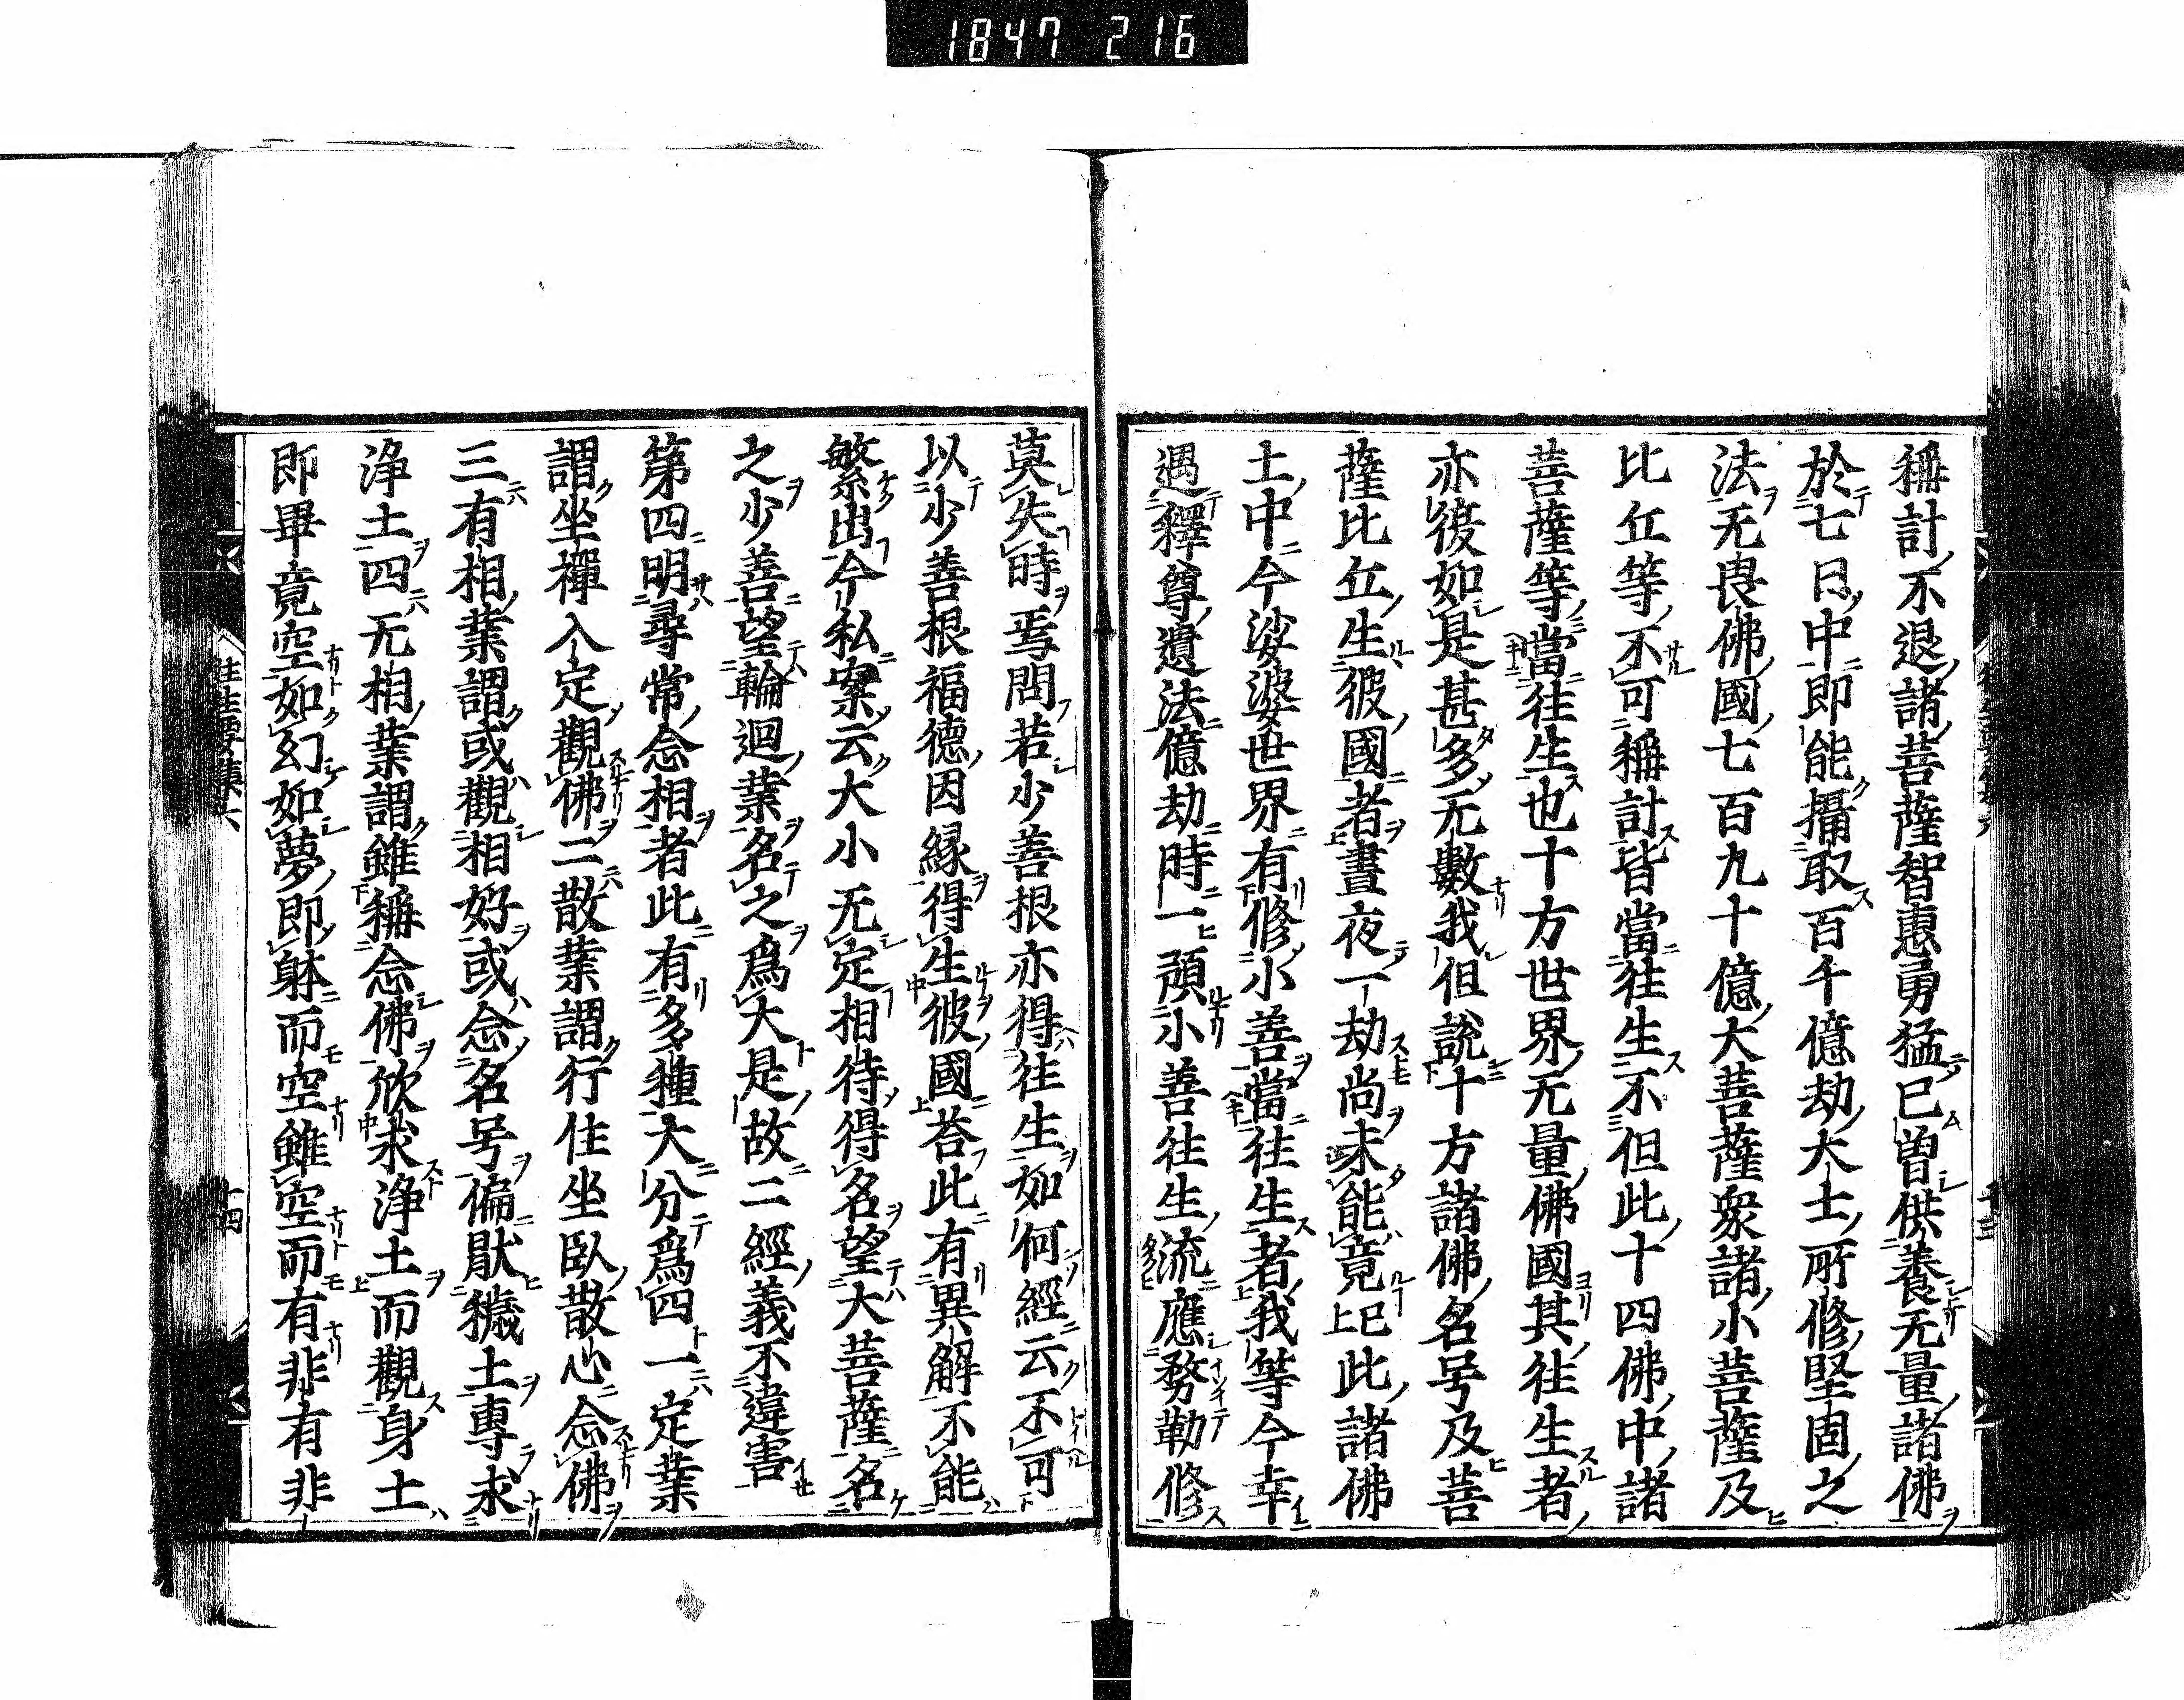 1847 216
稱計不退諸菩薩智惠勇猛已曽供養无量諸佛
於七日中即能攝取百千億劫大士所修堅固之
法无畏佛國七百九十億大菩薩衆諸小菩薩及
比丘等不可稱計皆當往生不但此十四佛中諸
菩薩等當往生也十方世界无量佛國其往生者
亦復如是甚多无數我但說十方諸佛名号及菩
薩比丘生彼國者晝夜一劫尚未能竟已上此諸佛
土中今娑婆世界有修小善當往生者我等今幸
遇釋尊遺法億劫時一預小善往生流應務勒修
莫失時焉問若少善根亦得往生如何經云不可
以少善根福德因縁得生彼國荅此有異解不能
繁出今私案云大小无定相待得名望大菩薩名
之少善望輪迴業名之爲大是故二經義不違害
第四明尋常念相者此有多種大分爲四一定業
謂坐禪入定觀佛二散業謂行住坐臥散心念佛
三有相業謂或觀相好或念名号偏猒穢土專求
浄土四无相業謂雖稱念佛欣求浄土而觀身土
即畢竟空如幻如夢即躰而空雖空而有非有非
往生要集六
十四